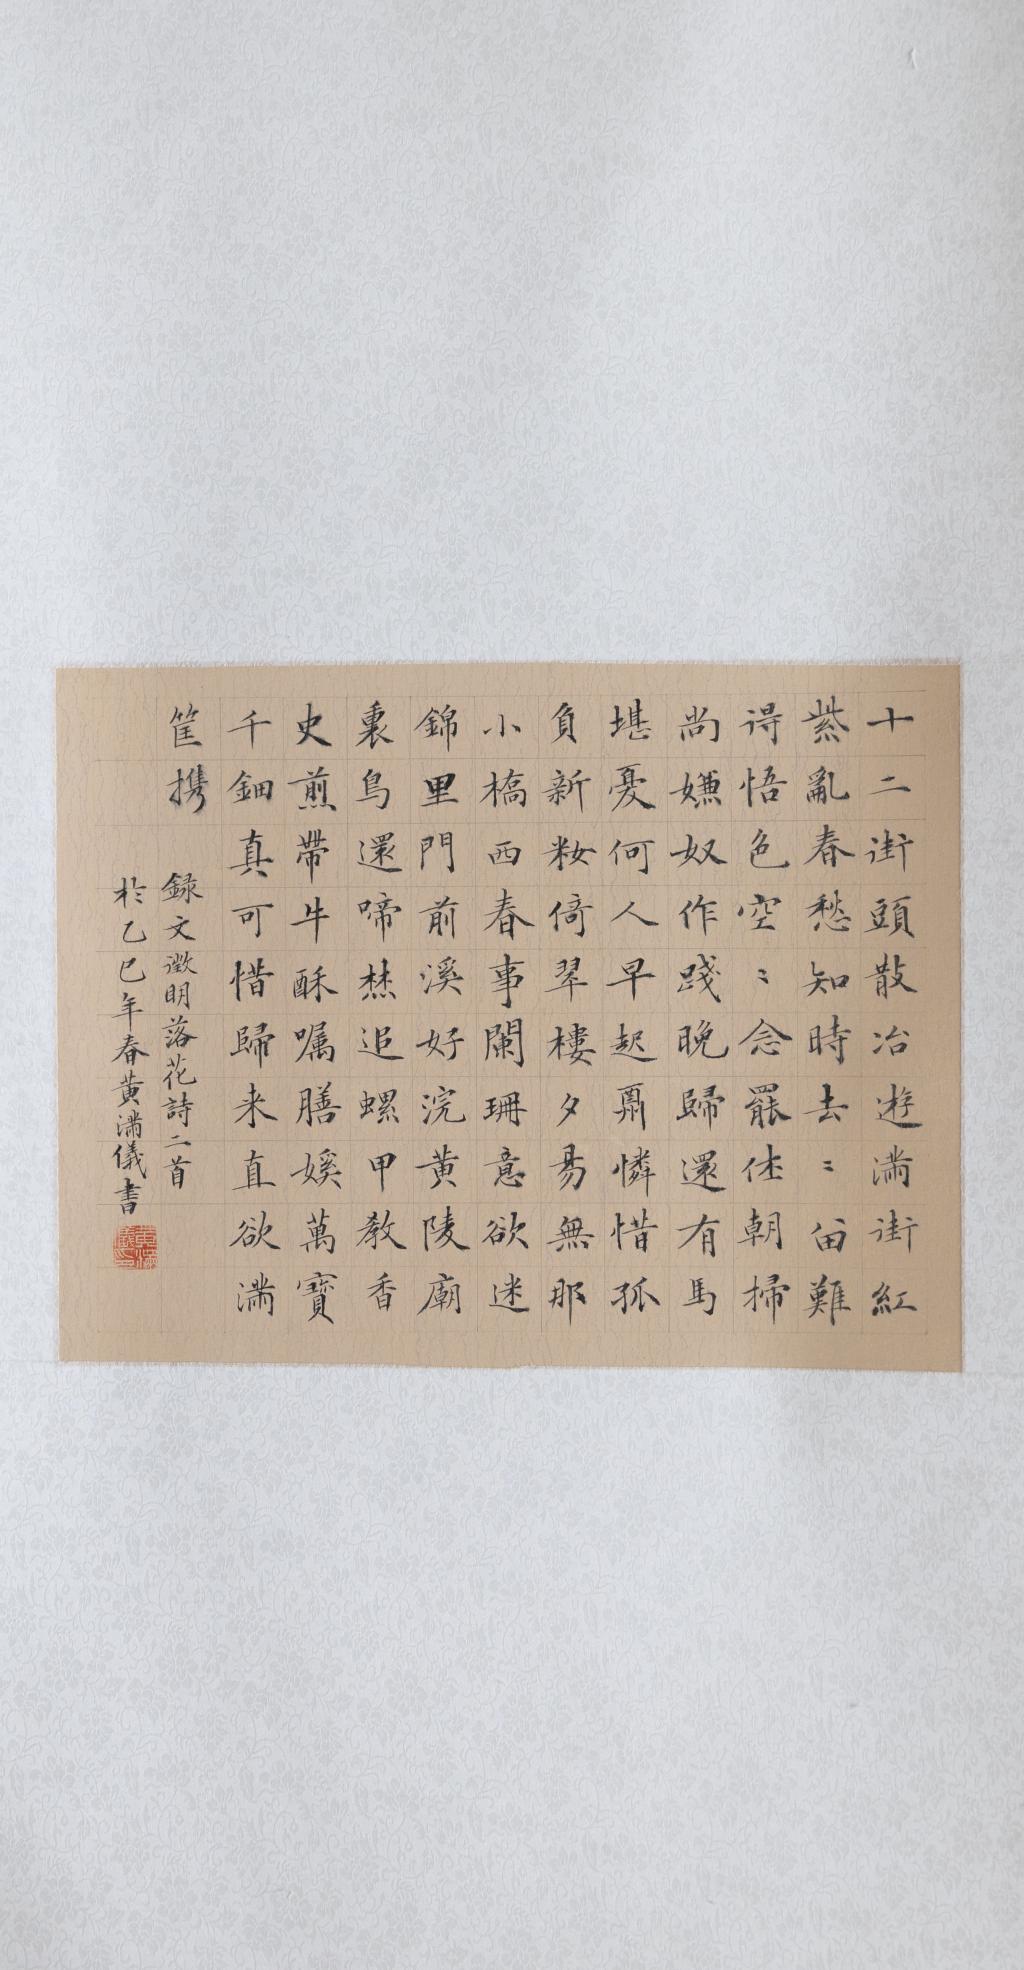 十二街頭散冶遊滿街紅
紫亂春愁知時去〻留難
得悟色空〻念罷休朝掃
尚嫌奴作踐晚歸還有馬
堪憂何人早起肩憐惜孤
負新粧倚翠樓夕易無那
小橋西春事闌珊意欲迷
錦里門前溪好浣黄陵廟
裏鳥還啼焚追螺甲教香
史煎帶牛酥囑膳媛萬寶
千鈿真可惜歸来直欲滿
筐攜
録文徵明落花詩二首
於乙巳年春黄滿儀書